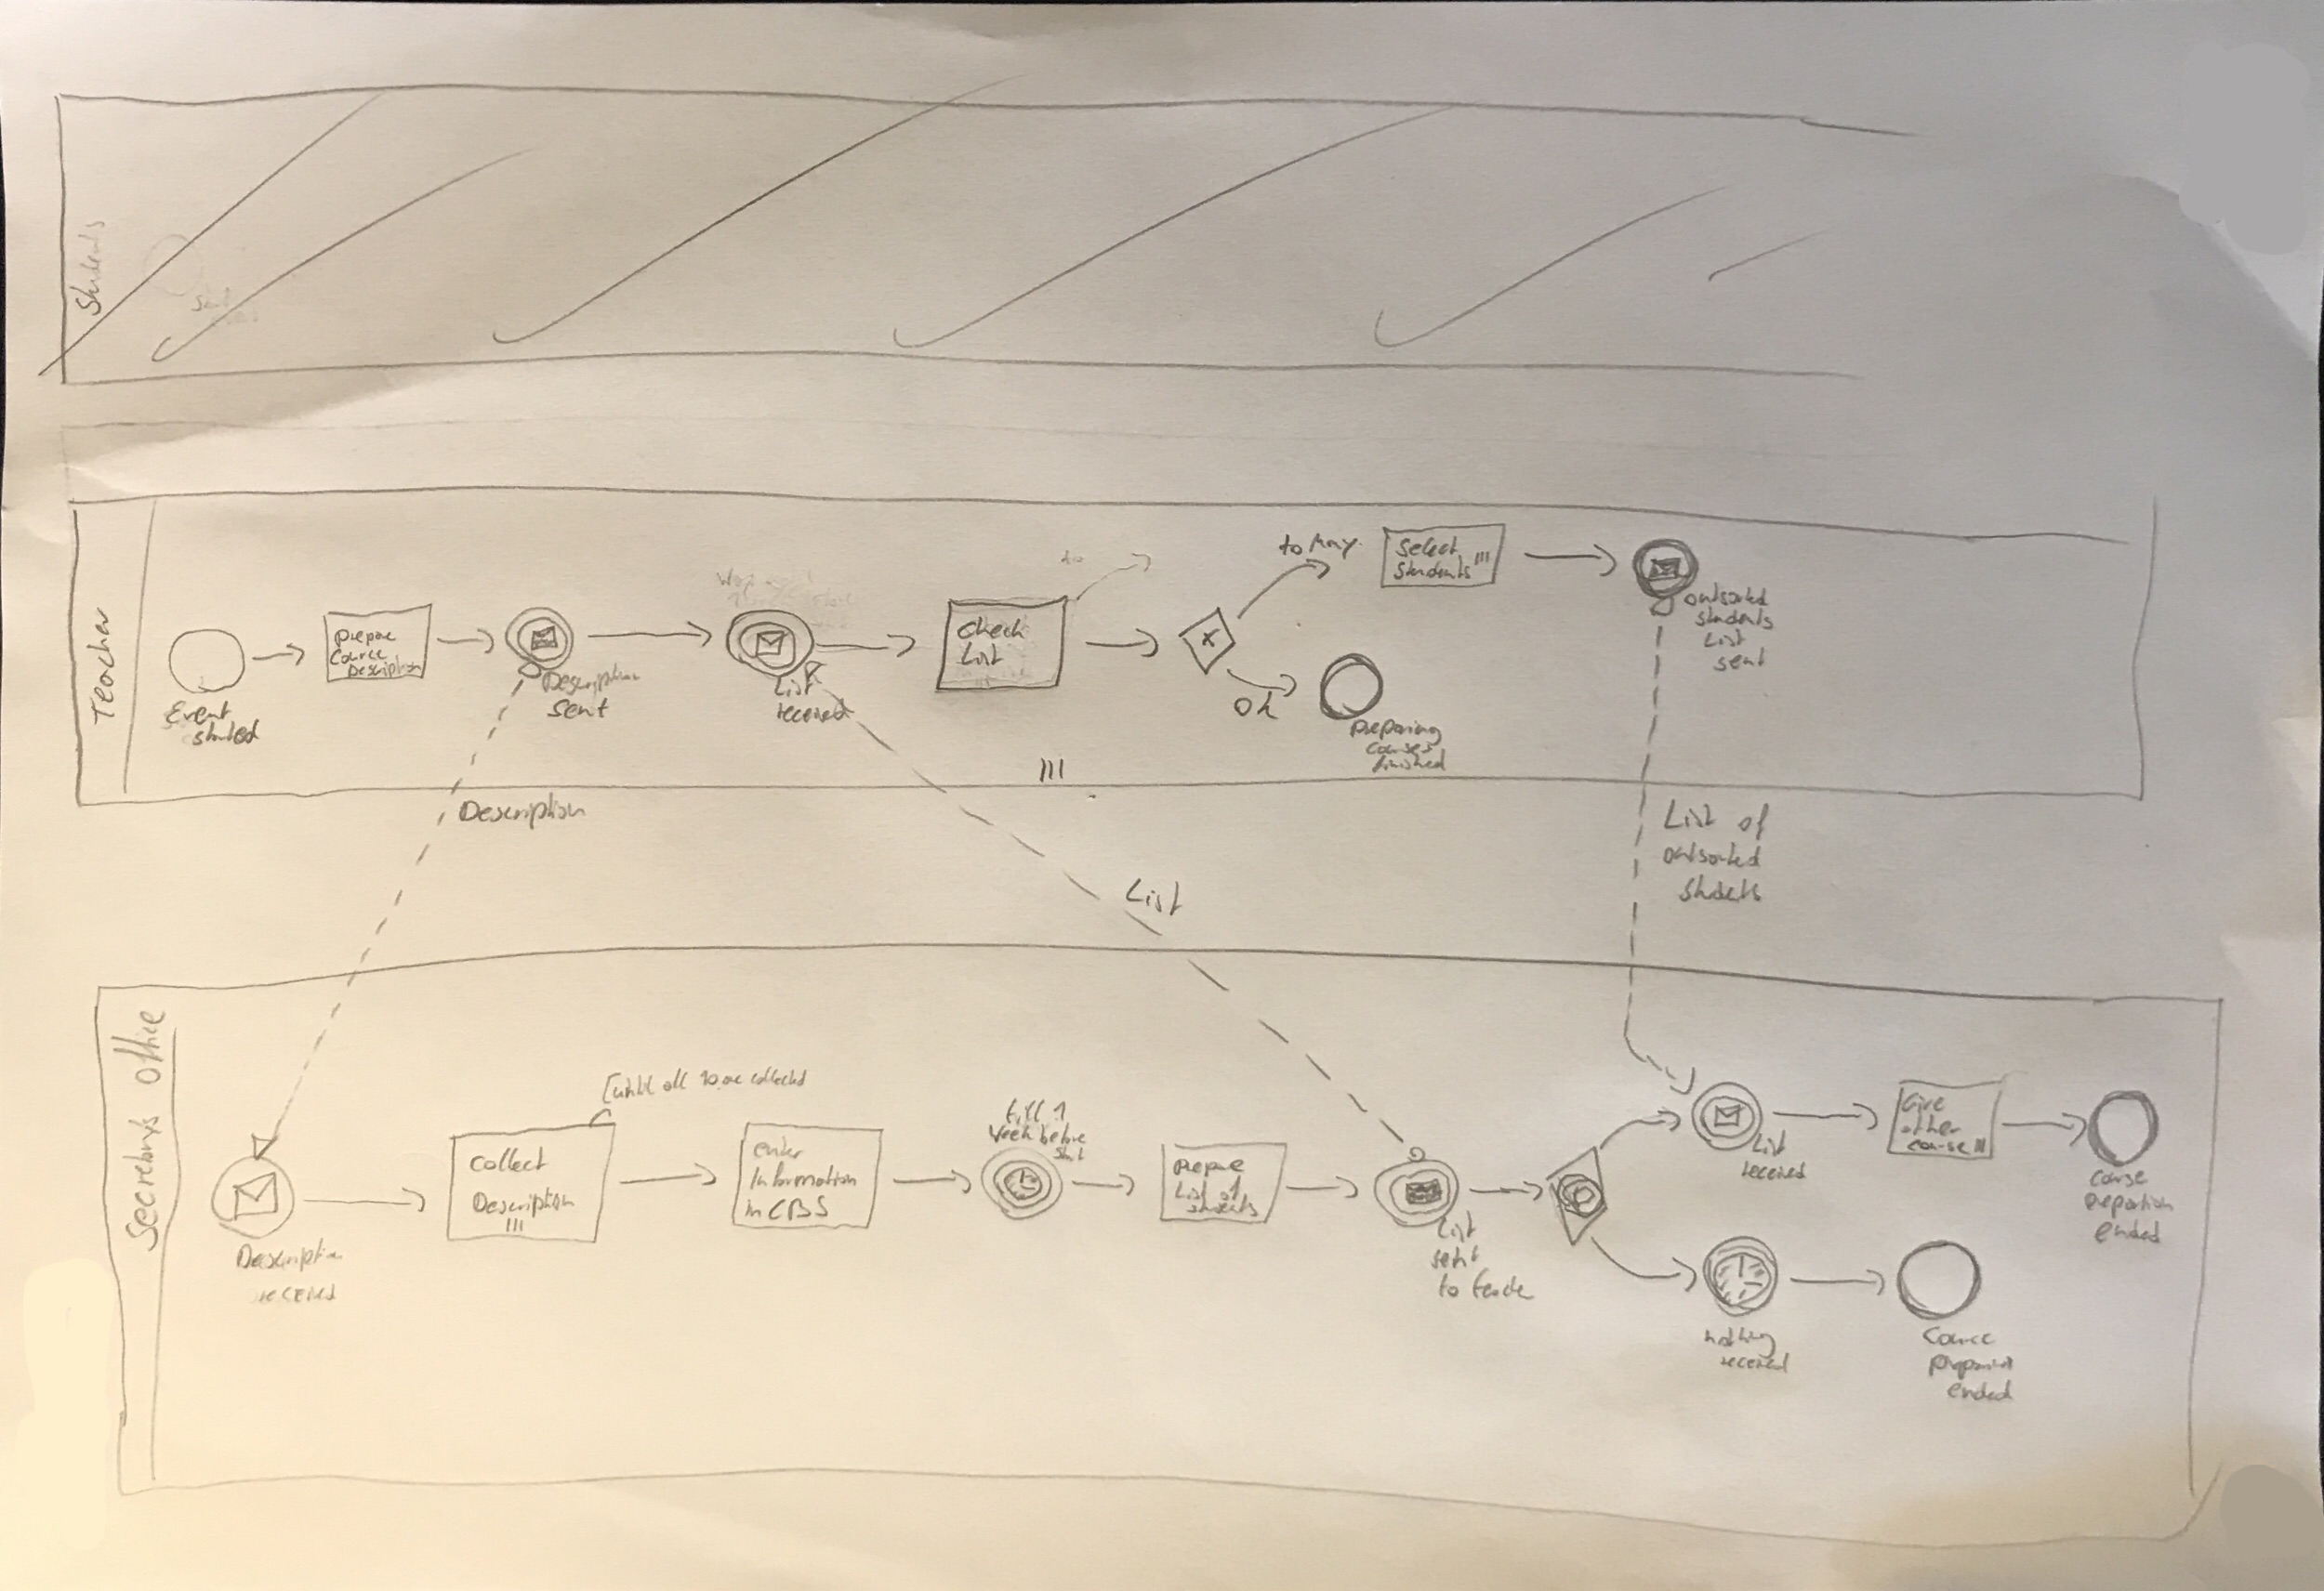 Students
Teacher
Event
started
prepare
Cource
Description
Description
sent
List
received
Check
List
to
to Many
Ok
Select
students
outsorted
students
List
sent
preparing
courses
finished
Description
List
List of
outsorted
Students
Secretarys Office
Description
received
Collect
Description
until all 10 are collected
enter
Information
in CBS
till 1
Week before
start
prepare
List of
students
List
sent
to teacher
List
received
Give
other
course
nothing
received
course
preparation
ended
Cource
ended